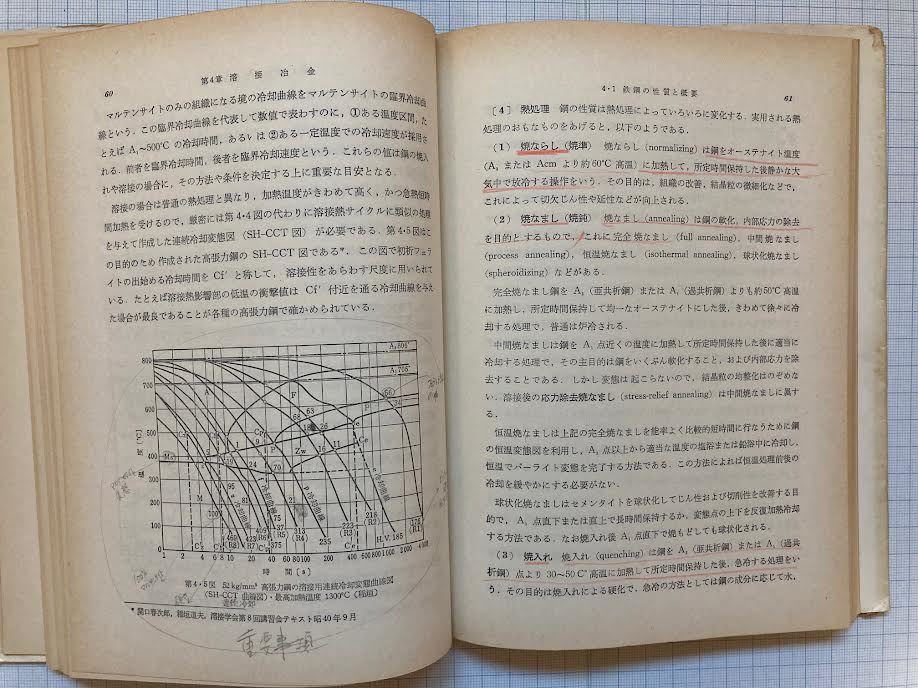 60
第4章 溶接冶金
マルテンサイトのみの組織になる境の冷却曲線をマルテンサイトの臨界冷却曲
線という．この臨界冷却曲線を代表して数値で表わすのに，①ある温度区間，た
とえば A₃～500°C の冷却時間，あるいは ②ある一定温度での冷却速度が採用さ
れる．前者を臨界冷却時間，後者を臨界冷却速度という．これらの値は鋼の焼入
れや溶接の場合に，その方法や条件を決定する上に重要な目安となる．
溶接の場合は普通の熱処理と異なり，加熱温度がきわめて高く，かつ急熱短時
間加熱を受けるので，厳密には第4・4図の代わりに溶接熱サイクルに類似の処理
を与えて作成した連続冷却変態図（SH-CCT 図）が必要である．第4・5図はこ
の目的のため作成された高張力鋼の SH-CCT 図である*．この図で初析フェラ
イトの出始める冷却時間を Cf′ と称して，溶接性をあらわす尺度に用いられて
いる．たとえば溶接熱影響部の低温の衝撃値は Cf′ 付近を通る冷却曲線を与え
た場合が最良であることが各種の高張力鋼で確かめられている．
800
700
600
500
400
300
200
100
0
温度〔°C〕
Ms
M
F
P
Zw
1 2 4 6 8 10 20 40 60 80 100 200 500 800 1000 2 4000
時間〔s〕
第4・5図 52kg/mm² 高張力鋼の溶接用連続冷却変態曲線図
（SH-CCT 曲線図）・最高加熱温度 1300°C（稲垣）
* 関口春次郎，稲垣道夫，溶接学会第8回講習会テキスト昭40年9月
重要事項
4・1 鉄鋼の性質と概要
61
〔4〕 熱処理 鋼の性質は熱処理によっていろいろに変化する．実用される熱
処理のおもなものをあげると，以下のようである．
（1） 焼ならし（焼準） 焼ならし（normalizing）は鋼をオーステナイト温度
（A₃ または Acm より約60°C 高温）に加熱して，所定時間保持した後静かな大
気中で放冷する操作をいう．その目的は，組織の改善，結晶粒の微細化などで，
これによって切欠じん性や延性などが向上される．
（2） 焼なまし（焼鈍） 焼なまし（annealing）は鋼の軟化，内部応力の除去
を目的とするもので，これに完全焼なまし（full annealing），中間焼なまし
（process annealing），恒温焼なまし（isothermal annealing），球状化焼なまし
（spheroidizing）などがある．
完全焼なまし鋼を A₃（亜共析鋼）または A₁（過共析鋼）よりも約50°C 高温
に加熱し，所定時間保持して均一なオーステナイトにした後，きわめて徐々に冷
却する処理で，普通は炉冷される．
中間焼なましは鋼を A₁ 点近くの温度に加熱して所定時間保持した後に適当に
冷却する処理で，その主目的は鋼をいくぶん軟化すること，および内部応力を除
去することである．しかし変態は起こらないので，結晶粒の均整化はのぞめな
い．溶接後の応力除去焼なまし（stress-relief annealing）は中間焼なましに属す
る．
恒温焼なましは上記の完全焼なましを能率よく比較的短時間に行なうために鋼
の恒温変態図を利用し，A₁ 点以上から適当な温度の塩浴または鉛浴中に冷却し，
恒温でパーライト変態を完了する方法である．この方法によれば恒温処理前後の
冷却を緩やかにする必要がない．
球状化焼なましはセメンタイトを球状化してじん性および切削性を改善する目
的で，A₁ 点直下または直上で長時間保持するか，変態点の上下を反復加熱冷却
する方法である．なお焼入れ後 A₁ 点直下で焼もどしても球状化される．
（3） 焼入れ 焼入れ（quenching）は鋼を A₃（亜共析鋼）または A₁（過共
析鋼）点より 30～50 C° 高温に加熱して所定時間保持した後，急冷する処理をい
う．その目的は焼入れによる硬化で，急冷の方法としては鋼の成分に応じて水，